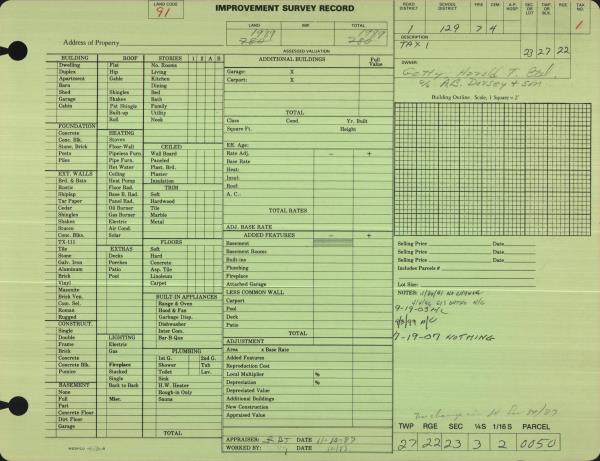 LAND CODE
91
IMPROVEMENT SURVEY RECORD
LAND IMP. TOTAL
1989 1989
780 780
Address of Property
ASSESSED VALUATION
ROAD DISTRICT SCHOOL DISTRICT FIRE CEM. A.P. HOSP. SEC OR LOT TWP OR BLK. RGE TAX NO.
1 129 7 4 1
DESCRIPTION
TAX 1 23 27 22
OWNER:
% A.B. Dorsey + son
Building Outline: Scale, 1 Square = 2'
BUILDING ROOF STORIES 1 2 A B
Dwelling Flat No. Rooms
Duplex Hip Living
Apartment Gable Kitchen
Barn Dining
Shed Shingles Bed
Garage Shakes Bath
Cabin Pat Shingle Family
Built-up Utility
Roll Nook
FOUNDATION
Concrete HEATING
Conc. Blk. Stoves
Stone, Brick Floor-Wall CEILED
Posts Pipeless Furn. Wall Board
Piles Pipe Furn. Paneled
Hot Water Plast. Brd.
EXT. WALLS Ceiling Plaster
Brd. & Bats Heat Pump Insulation
Rustic Floor Rad. TRIM
Shiplap Base B. Rad. Soft
Tar Paper Panel Rad. Hardwood
Cedar Oil Burner Tile
Shingles Gas Burner Marble
Shakes Electric Metal
Stucco Air Cond.
Conc. Blks. Solar
TX-111 FLOORS
Tile EXTRAS Soft
Stone Decks Hard
Galv. Iron Porches Concrete
Aluminum Patio Asp. Tile
Brick Pool Linoleum
Vinyl Carpet
Masonite
Brick Ven. BUILT-IN APPLIANCES
Com. Sel. Range & Oven
Roman Hood & Fan
Rugged Garbage Disp.
CONSTRUCT. Dishwasher
Single Inter Com.
Double LIGHTING Bar-B-Que
Frame Electric
Brick Gas PLUMBING
Concrete 1st G. 2nd G.
Concrete Blk. Fireplace Shower Tub
Pumice Stacked Toilet Lav.
Single Sink
BASEMENT Back to Back H.W. Heater
None Rough-in Only
Full Misc. Sauna
Part
Concrete Floor
Dirt Floor
Garage
TOTAL
ADDITIONAL BUILDINGS Full Value
Garage: X
Carport: X
TOTAL
Class Cond. Yr. Built
Square Ft. Height
Eff. Age:
Rate Adj. − +
Base Rate
Heat:
Insul:
Roof:
A. C.:
TOTAL RATES
ADJ. BASE RATE
ADDED FEATURES − +
Basement
Basement Rooms
Built-ins
Plumbing
Fireplace
Attached Garage
LESS COMMON WALL
Carport
Pool
Deck
Patio
TOTAL
ADJUSTMENT
Area x Base Rate
Added Features
Reproduction Cost
Local Multiplier %
Depreciation %
Depreciated Value
Additional Buildings
New Construction
Appraised Value
APPRAISER: DATE 11-10-87
WORKED BY: DATE
Selling Price Date
Selling Price Date
Selling Price Date
Includes Parcels #
Lot Size:
NOTES: NO CHANGE
9-19-03 N/C
N/C
7-19-07 NOTHING
TWP RGE SEC ¼S 1/16 S PARCEL
27 22 23 3 2 0050